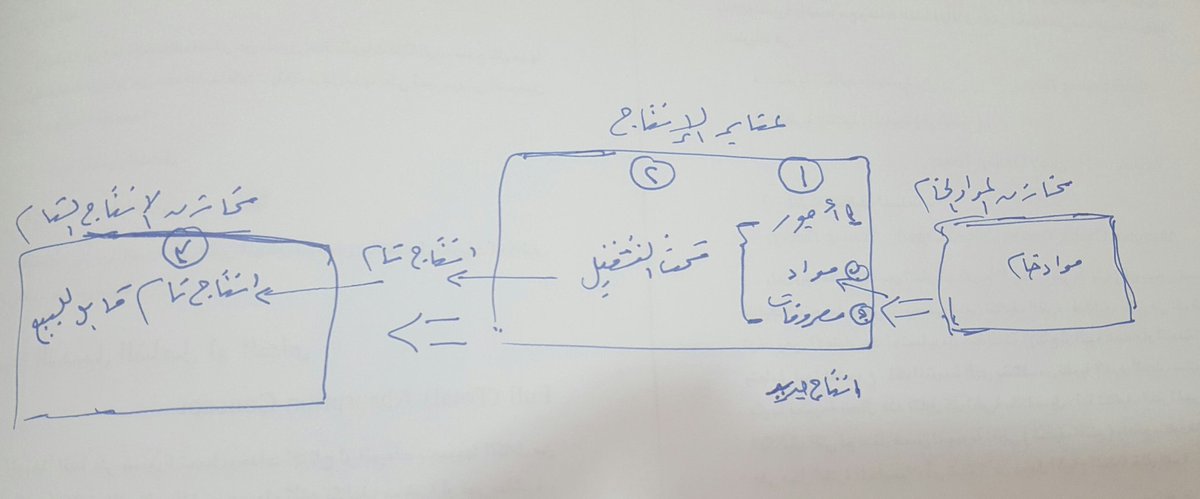 عنابر الإنتاج
مخازن المواد الخام
مواد خام
١
أجور
مواد
مصروفات
٢
تحت التشغيل
انتاج تام
مخازن الإنتاج التام
٣
انتاج تام قابل للبيع
انتاج